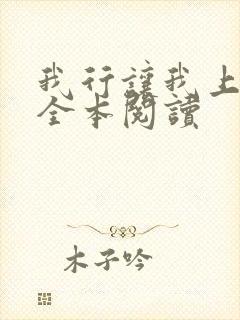 我行讓我上
全本閱讀
木子吟